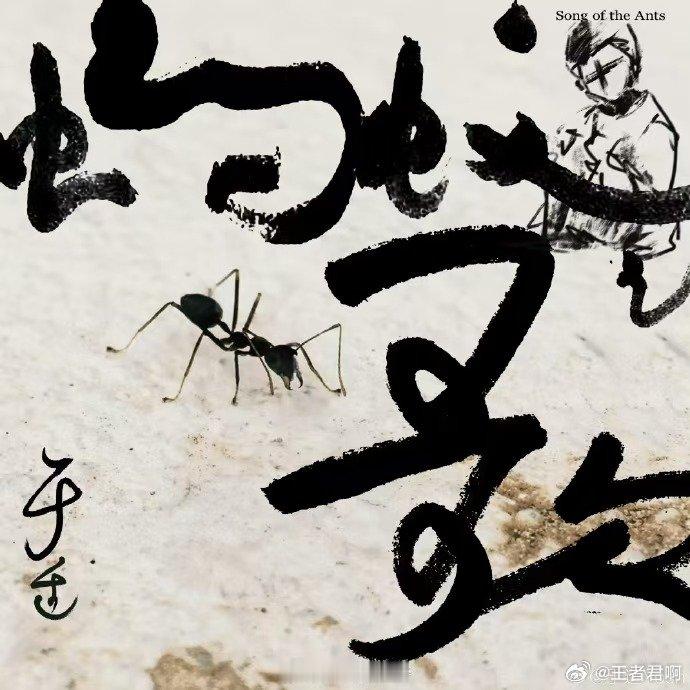 Song of the Ants
蚂蚁
歌
于
@王者君啊